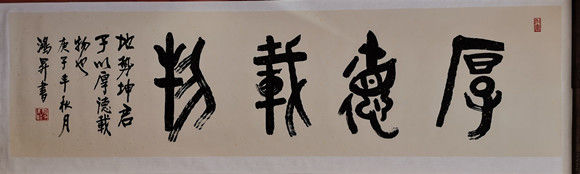 厚德載物
地勢坤君
子以厚德載
物也
庚子年秋月
鴻昇書